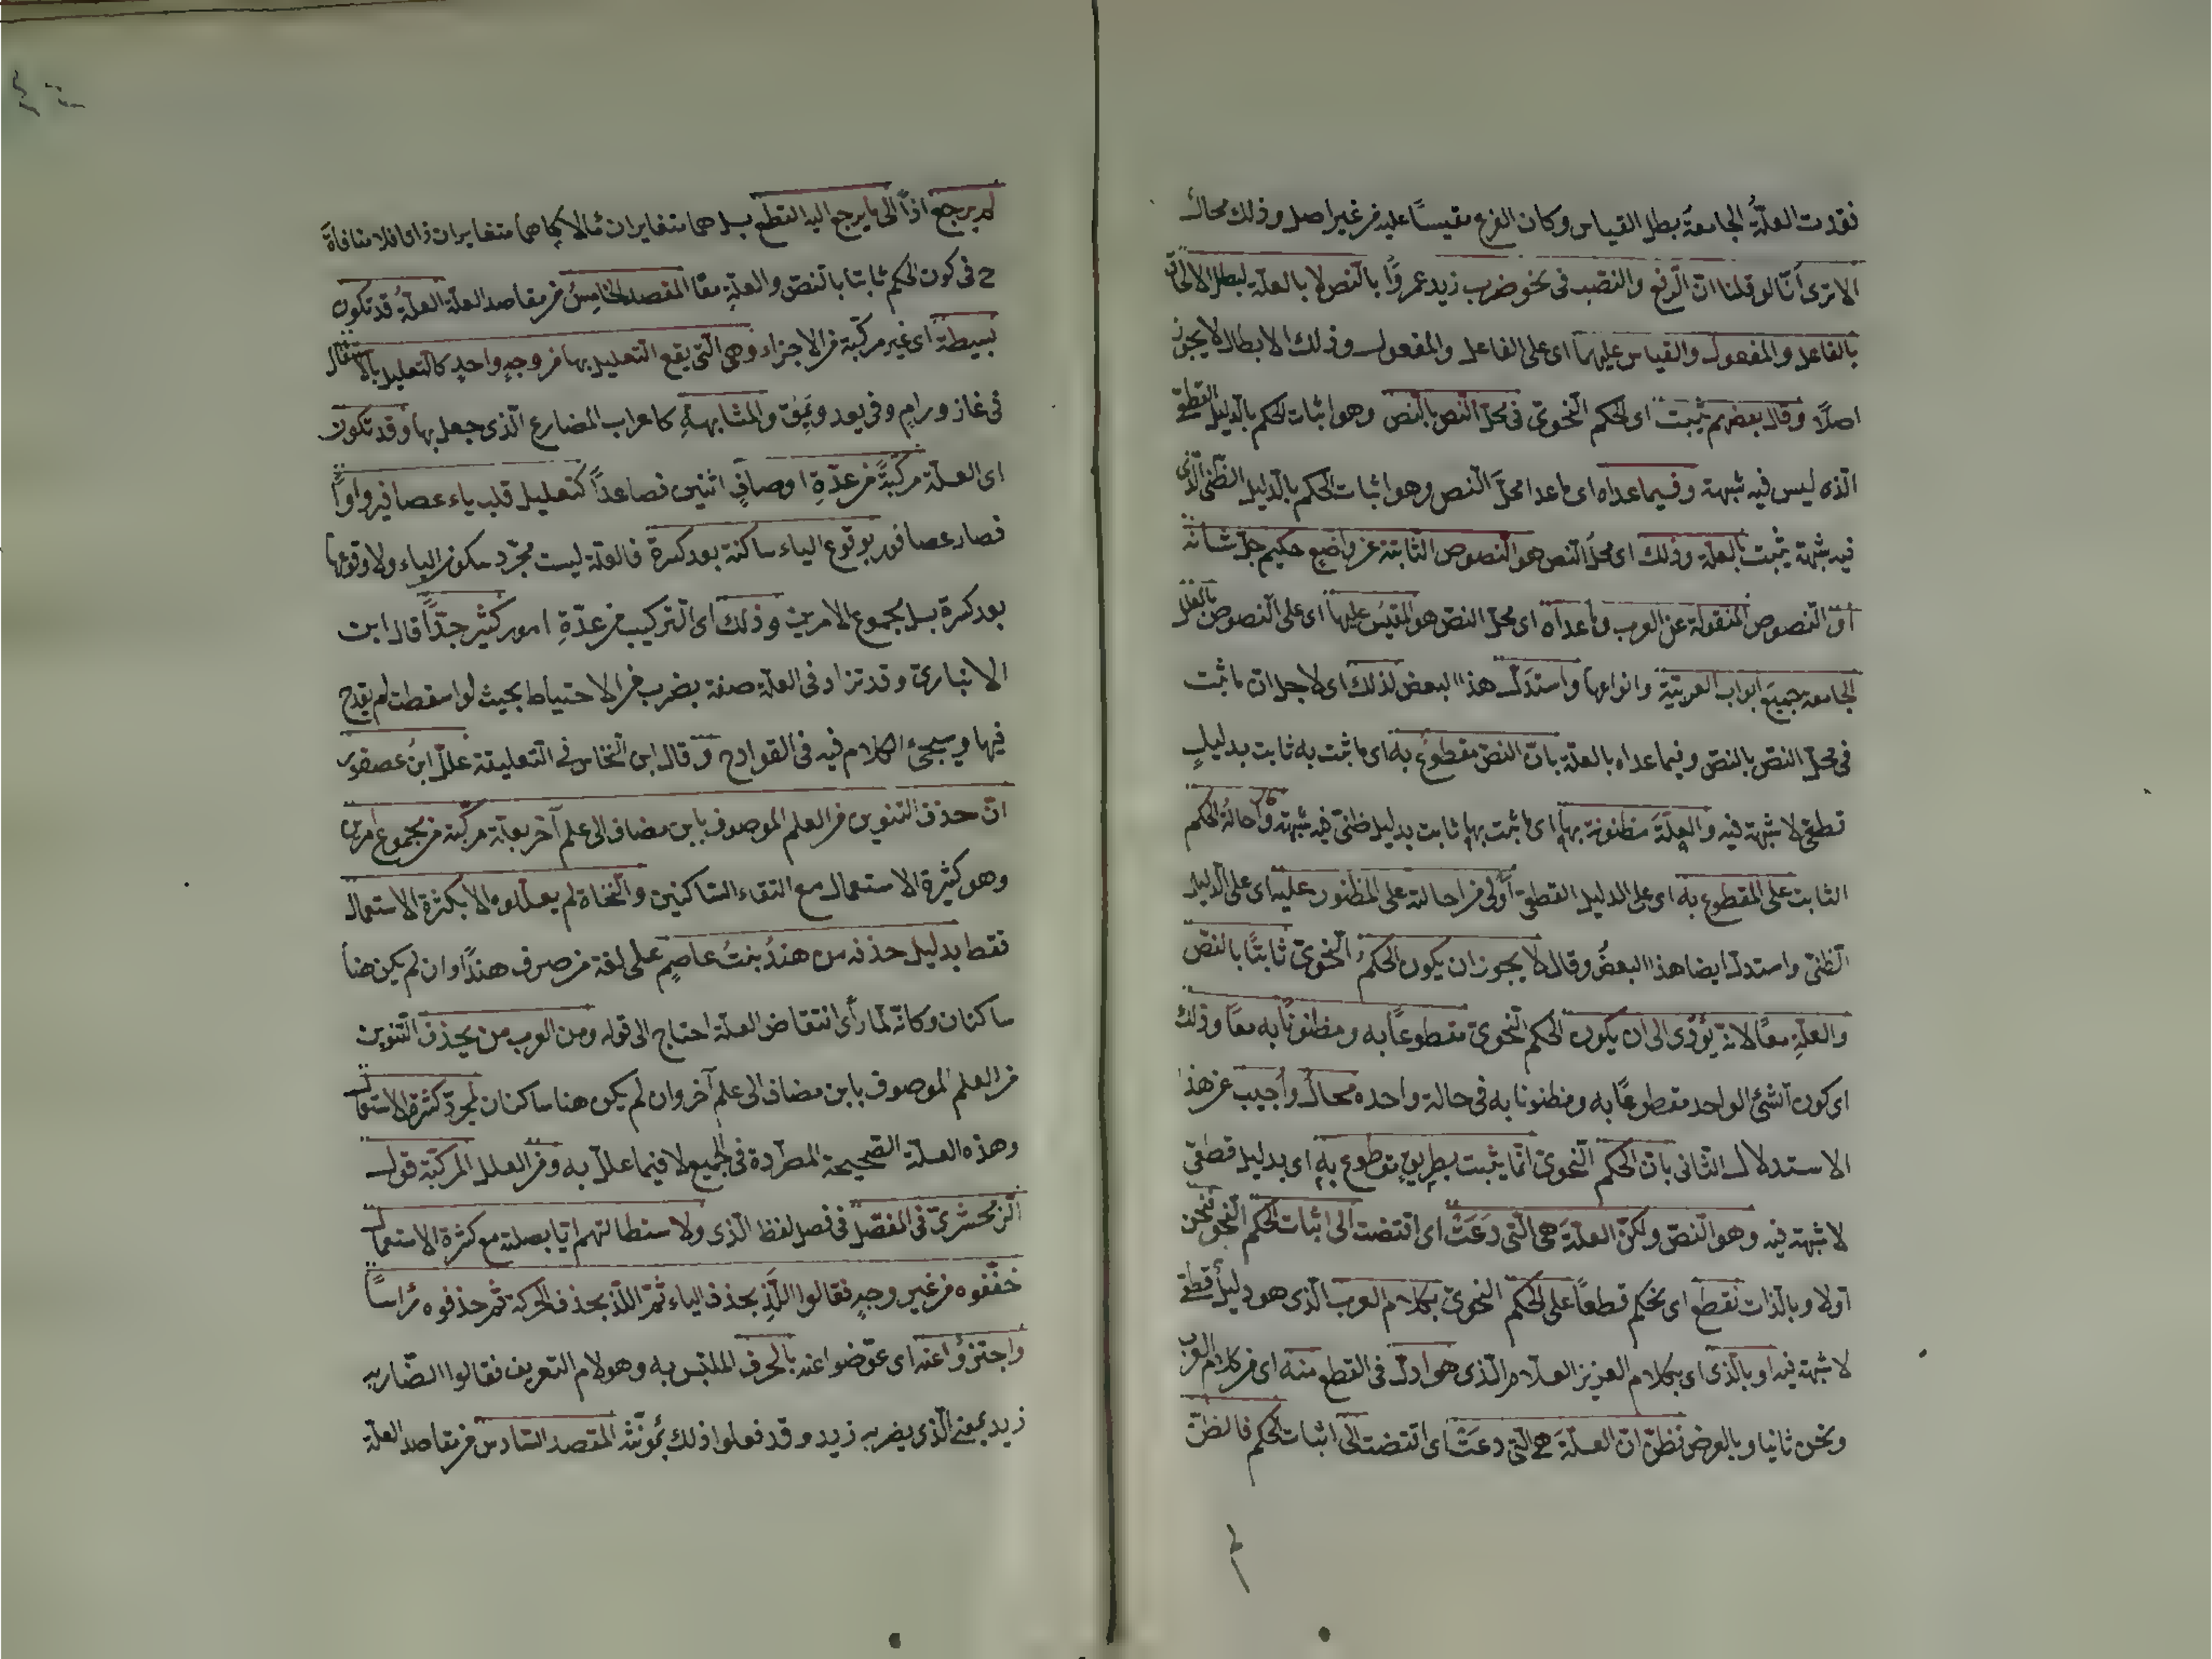 فقدت العلّةُ الجامعةُ بطل القياس وكان الفرع مقيسًا عليه من غير اصل وذلك محال
الا ترى أنّا لو قلنا انّ الرّفع والنّصب في نحو ضرب زيد عمروًا بالنّص لا بالعلّة لبطل الالحاق
بالفاعل والمفعول والقياس عليهما اى على الفاعل والمفعول وذلك الابطال لا يجوز
اصلًا وقال بعضهم يثبت اى الحكم النّحوى في محلّ النّص بالنّص وهو اثبات الحكم بالدّليل القطعىّ
الّذى ليس فيه شبهة وفيما عداه اى ما عدا محلّ النّص وهو اثبات الحكم بالدّليل الظّنى الّذى
فيه شبهة يثبت بالعلّة وذلك اى محلّ النّص هو النّصوص الثّابتة عن واضع حكيم جلّ شانه
او النّصوص المنقولة عن العرب وما عداه اى محلّ النّص هو المقيس عليها اى على النّصوص بالعلل
الجامعة جميع ابواب العربيّة وانواعها واستدلّ هذا البعض لذلك اى لاجل ان ما ثبت
في محلّ النّصّ بالنّصّ وفيما عداه بالعلّة بانّ النّصّ مقطوعٌ به اى ما ثبت به ثابت بدليلٍ
قطعىّ لا شبهة فيه والعلّةَ مظنونة بها اى ما ثبت بها ثابت بدليل ظنّىّ فيه شبهة واحالةُ الحكم
الثابت على المقطوع به اى على الدليل القطعىّ أولى من احالته على المظنون عليه اى على الدّليل
الظّنىّ واستدلّ ايضا هذا البعضُ وقال لا يجوز ان يكون الحكمُ النّحوىّ ثابتًا بالنّصّ
والعلّةِ معًا لانّه يؤدّى الى ان يكون الحكم النّحوىّ مقطوعًا به ومظنونًا به معًا وذلك
اى كون الشئ الواحد مقطوعًا به ومظنونا به في حالة واحده محالٌ وأجيب عن هذا
الاستدلال الثّانى بانّ الحكم النّحوىّ انّما يثبت بطريقٍ مقطوع به اى بدليل قطعىّ
لا شبهة فيه وهو النّصّ ولكنّ العلّةَ هى الّتى دَعَتْ اى اقتضت الى اثبات الحكم النّحوىّ فنحن
اوّلا وبالذّات نقطع اى نحكم قطعًا على الحكم النّحوىّ بكلام العرب الّذى هو دليلٌ قطعىّ
لا شبهة فيه او بالّذى اى بكلام العزيز العلّام الّذى هو ادلّ في القطع منه اى من كلام العرب
ونحن ثانيا وبالعرض نظنّ انّ العلّةَ هى الّتى دعَتْ اى اقتضت الى اثبات الحكم فالظّنّ
لم يرجع اذاً الى ما يرجع اليه القطع بل هما متغايران مآلا كما هما متغايران ذاتا فلا منافاةَ
ح في كون الحكم ثابتا بالنّصّ والعلّةِ معًا المقصد الخامِسُ من مقاصد العلّة العلّةُ قد تكون
بسيطة اى غير مركّبة من الاجزاء وهى الّتى يقع التّعليل بها من وجهٍ واحدٍ كالتّعليل بالاستثقال
في غاز ورامٍ وفي يعد ويَمِقُ والمشابهةِ كاعراب المضارع الّذى جعل بها وقد تكون
اى العلّة مركّبةً من عدّةِ اوصافٍ اثنين فصاعداً كتعليل قلب ياء عصافير واواً
فصار عصافور بوقوع الياء ساكنة بعد كسرة فالعلّة ليست مجرّد سكون الياء ولا وقوعها
بعد كسرة بل مجموع الامرين وذلك اى التّركيب من عدّةِ امور كثير جدًّا قال ابن
الانبارىّ وقد تزاد في العلّة صفة بضرب من الاحتياط بحيث لو اسقطت لم يقدح
فيها وسيجئ الكلام فيه في القوادح وقال ابن النّحاس في التّعليقة علّل ابن عصفور
انّ حذف التنوين من العلم الموصوف بابن مضاف الى علم آخر بعلّة مركّبة من مجموع امرين
وهو كثرة الاستعمال مع التقاء السّاكنين والنّحاة لم يعلّلوه الا بكثرة الاستعمال
فقط بدليل حذفه من هندُ بنتُ عاصِمٍ على لغة من صرف هنداً وان لم يكن هنا
ساكنان وكانّه لمّا رأى انتقاض العلّة احتاج الى قوله ومن العرب من يحذف التّنوين
من العلم الموصوف بابن مضاف الى علم آخر وان لم يكن هنا ساكنان لمجرّد كثرة الاستعمال
وهذه العلّة الصّحيحة المطّردة في الجميع لا فيما علّل به ومن العلل المركّبة قول
الزّمخشرىّ في المفصّل في فصل لفظ الّذى ولاستطالتهم ايّا بصلته مع كثرة الاستعمال
خفّفوه من غير وجهٍ فقالوا اللّذِ بحذف الياء ثمّ اللّذْ بحذف الحركة ثمّ حذفوه رأساً
واجتزؤا عنه اى عوّضوا عنه بالحرف الملتبس به وهو لام التعريف فقالوا الضّاربه
زيد بمعنى الّذى يضربه زيد وقد فعلوا ذلك بمؤنّثه المقصد السّادس من مقاصد العلّة